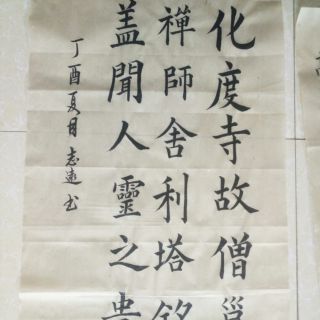 化度寺故僧邕
禪師舍利塔銘
蓋聞人靈之貴
丁酉夏月志遠书